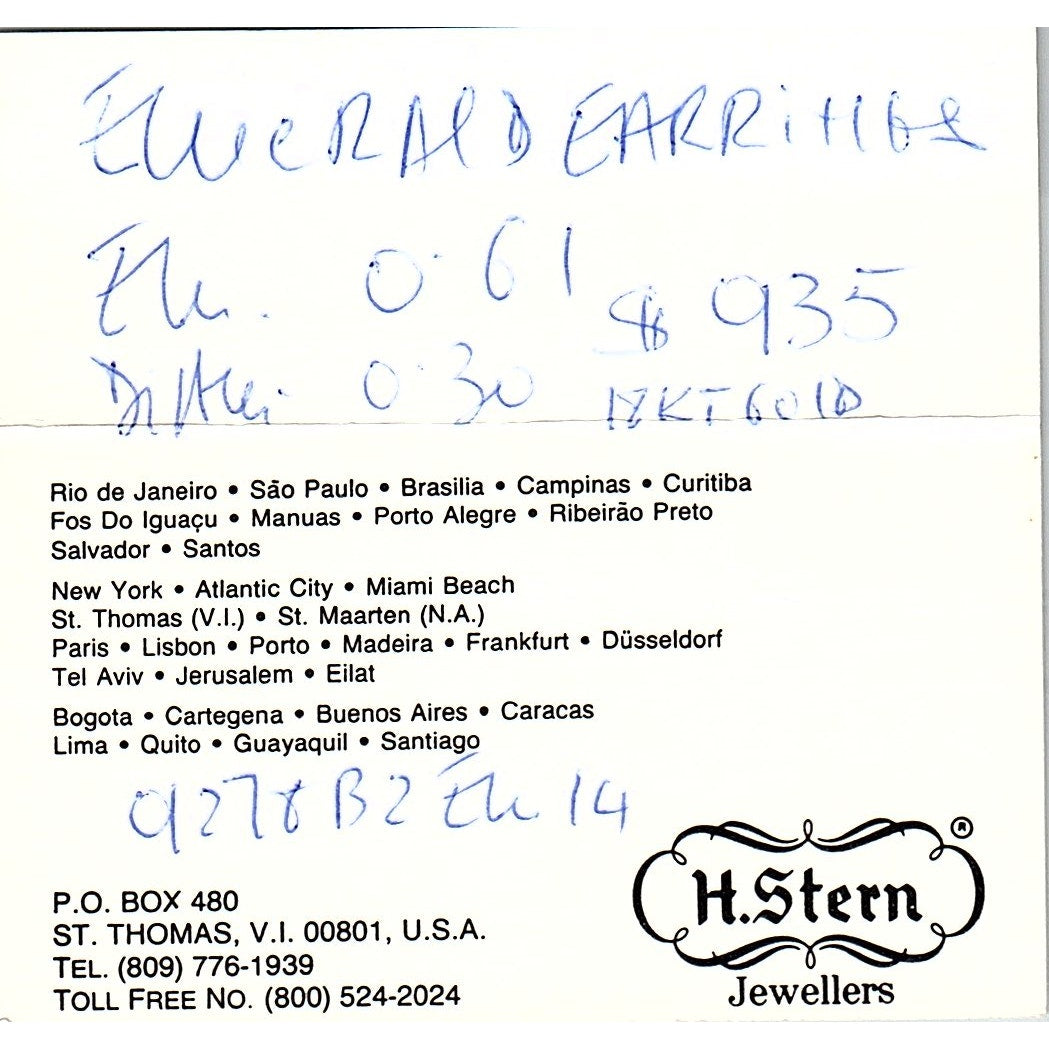 EMERALD EARRINGS
Em. 0.61
$ 935
0.30 18KT GOLD
Rio de Janeiro • São Paulo • Brasilia • Campinas • Curitiba
Fos Do Iguaçu • Manuas • Porto Alegre • Ribeirão Preto
Salvador • Santos
New York • Atlantic City • Miami Beach
St. Thomas (V.I.) • St. Maarten (N.A.)
Paris • Lisbon • Porto • Madeira • Frankfurt • Düsseldorf
Tel Aviv • Jerusalem • Eilat
Bogota • Cartegena • Buenos Aires • Caracas
Lima • Quito • Guayaquil • Santiago
9278 B2 Em 14
P.O. BOX 480
ST. THOMAS, V.I. 00801, U.S.A.
TEL. (809) 776-1939
TOLL FREE NO. (800) 524-2024
H.Stern ®
Jewellers